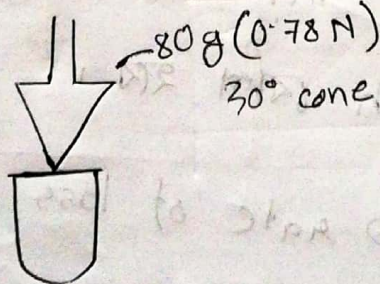 80 g (0.78 N)
30° cone